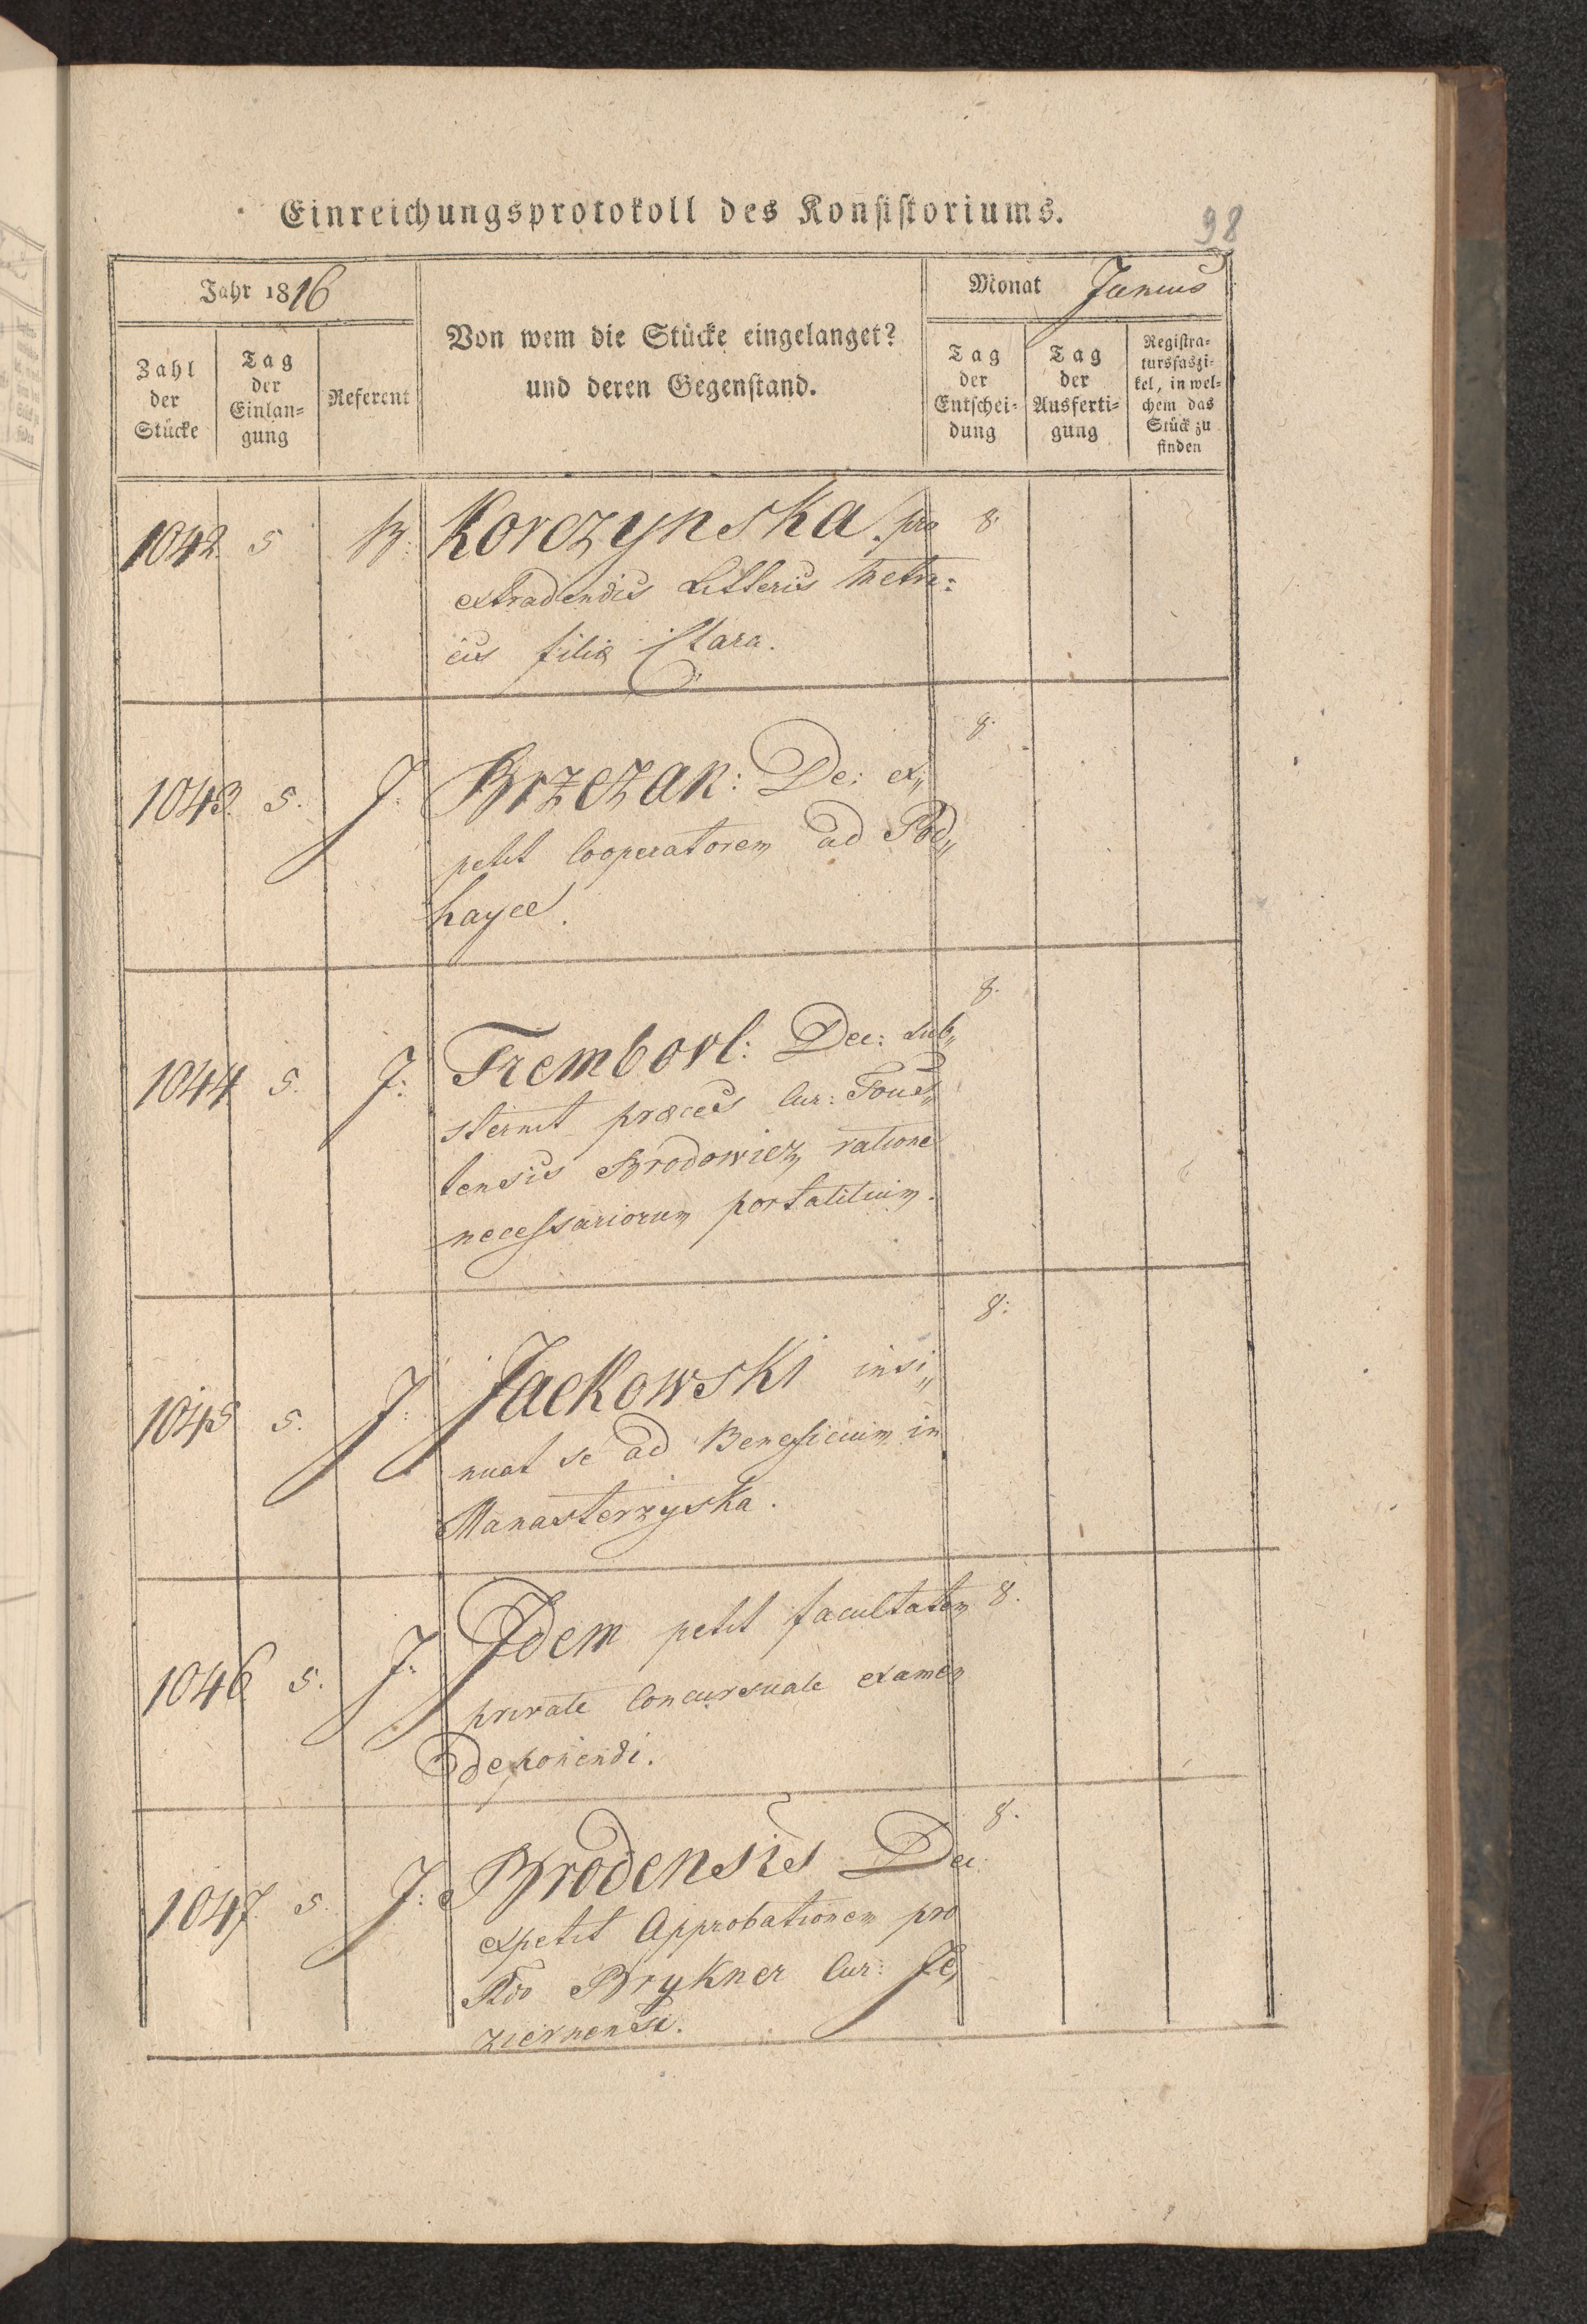 Einreichungsprotokoll des Konsistoriums.
98
Jahr 1816
Von wem die Stücke eingelanget?
und deren Gegenstand.
Monat Junius
Zahl der Stücke
Tag der Einlan=gung
Referent
Tag der Entschei=dung
Tag der Ausferti=gung
Registra=tursfaszi=kel, in wel=chem das Stück zu finden
1042. 5 Korczynska. pro 8.
extradendis Litteris Metri=
cis filiæ Clara.
1043. 5. J: Brzezan: De: ex„ 8.
petit Cooperatorem ad Pod„
hayce.
1044 5. J: Trembowl: Dec: sub„ 8.
sternit præces Cur: Tous„
tensis Brodowicz ratione
necessariorum portatilium.
1045 5. J: Jackowski insi„ 8:
nuat se ad Beneficium in
Manasterzyska.
1046 5. J: Idem petit facultatem 8.
private Concursuale examen
deponendi.
1047. 5. J: Brodensis Dec: 8.
expetit Approbationem pro
Rdo Brykner Cur: Je„
ziernensi.